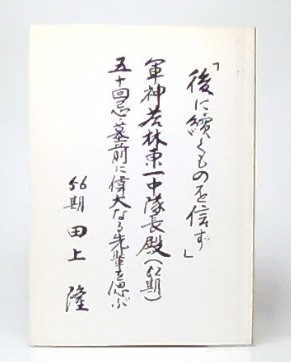 「後に續くものを信ず」
軍神若林東一中隊長殿(52期)
五十回忌・墓前に偉大なる先輩を思ぶ
56期 田上 隆